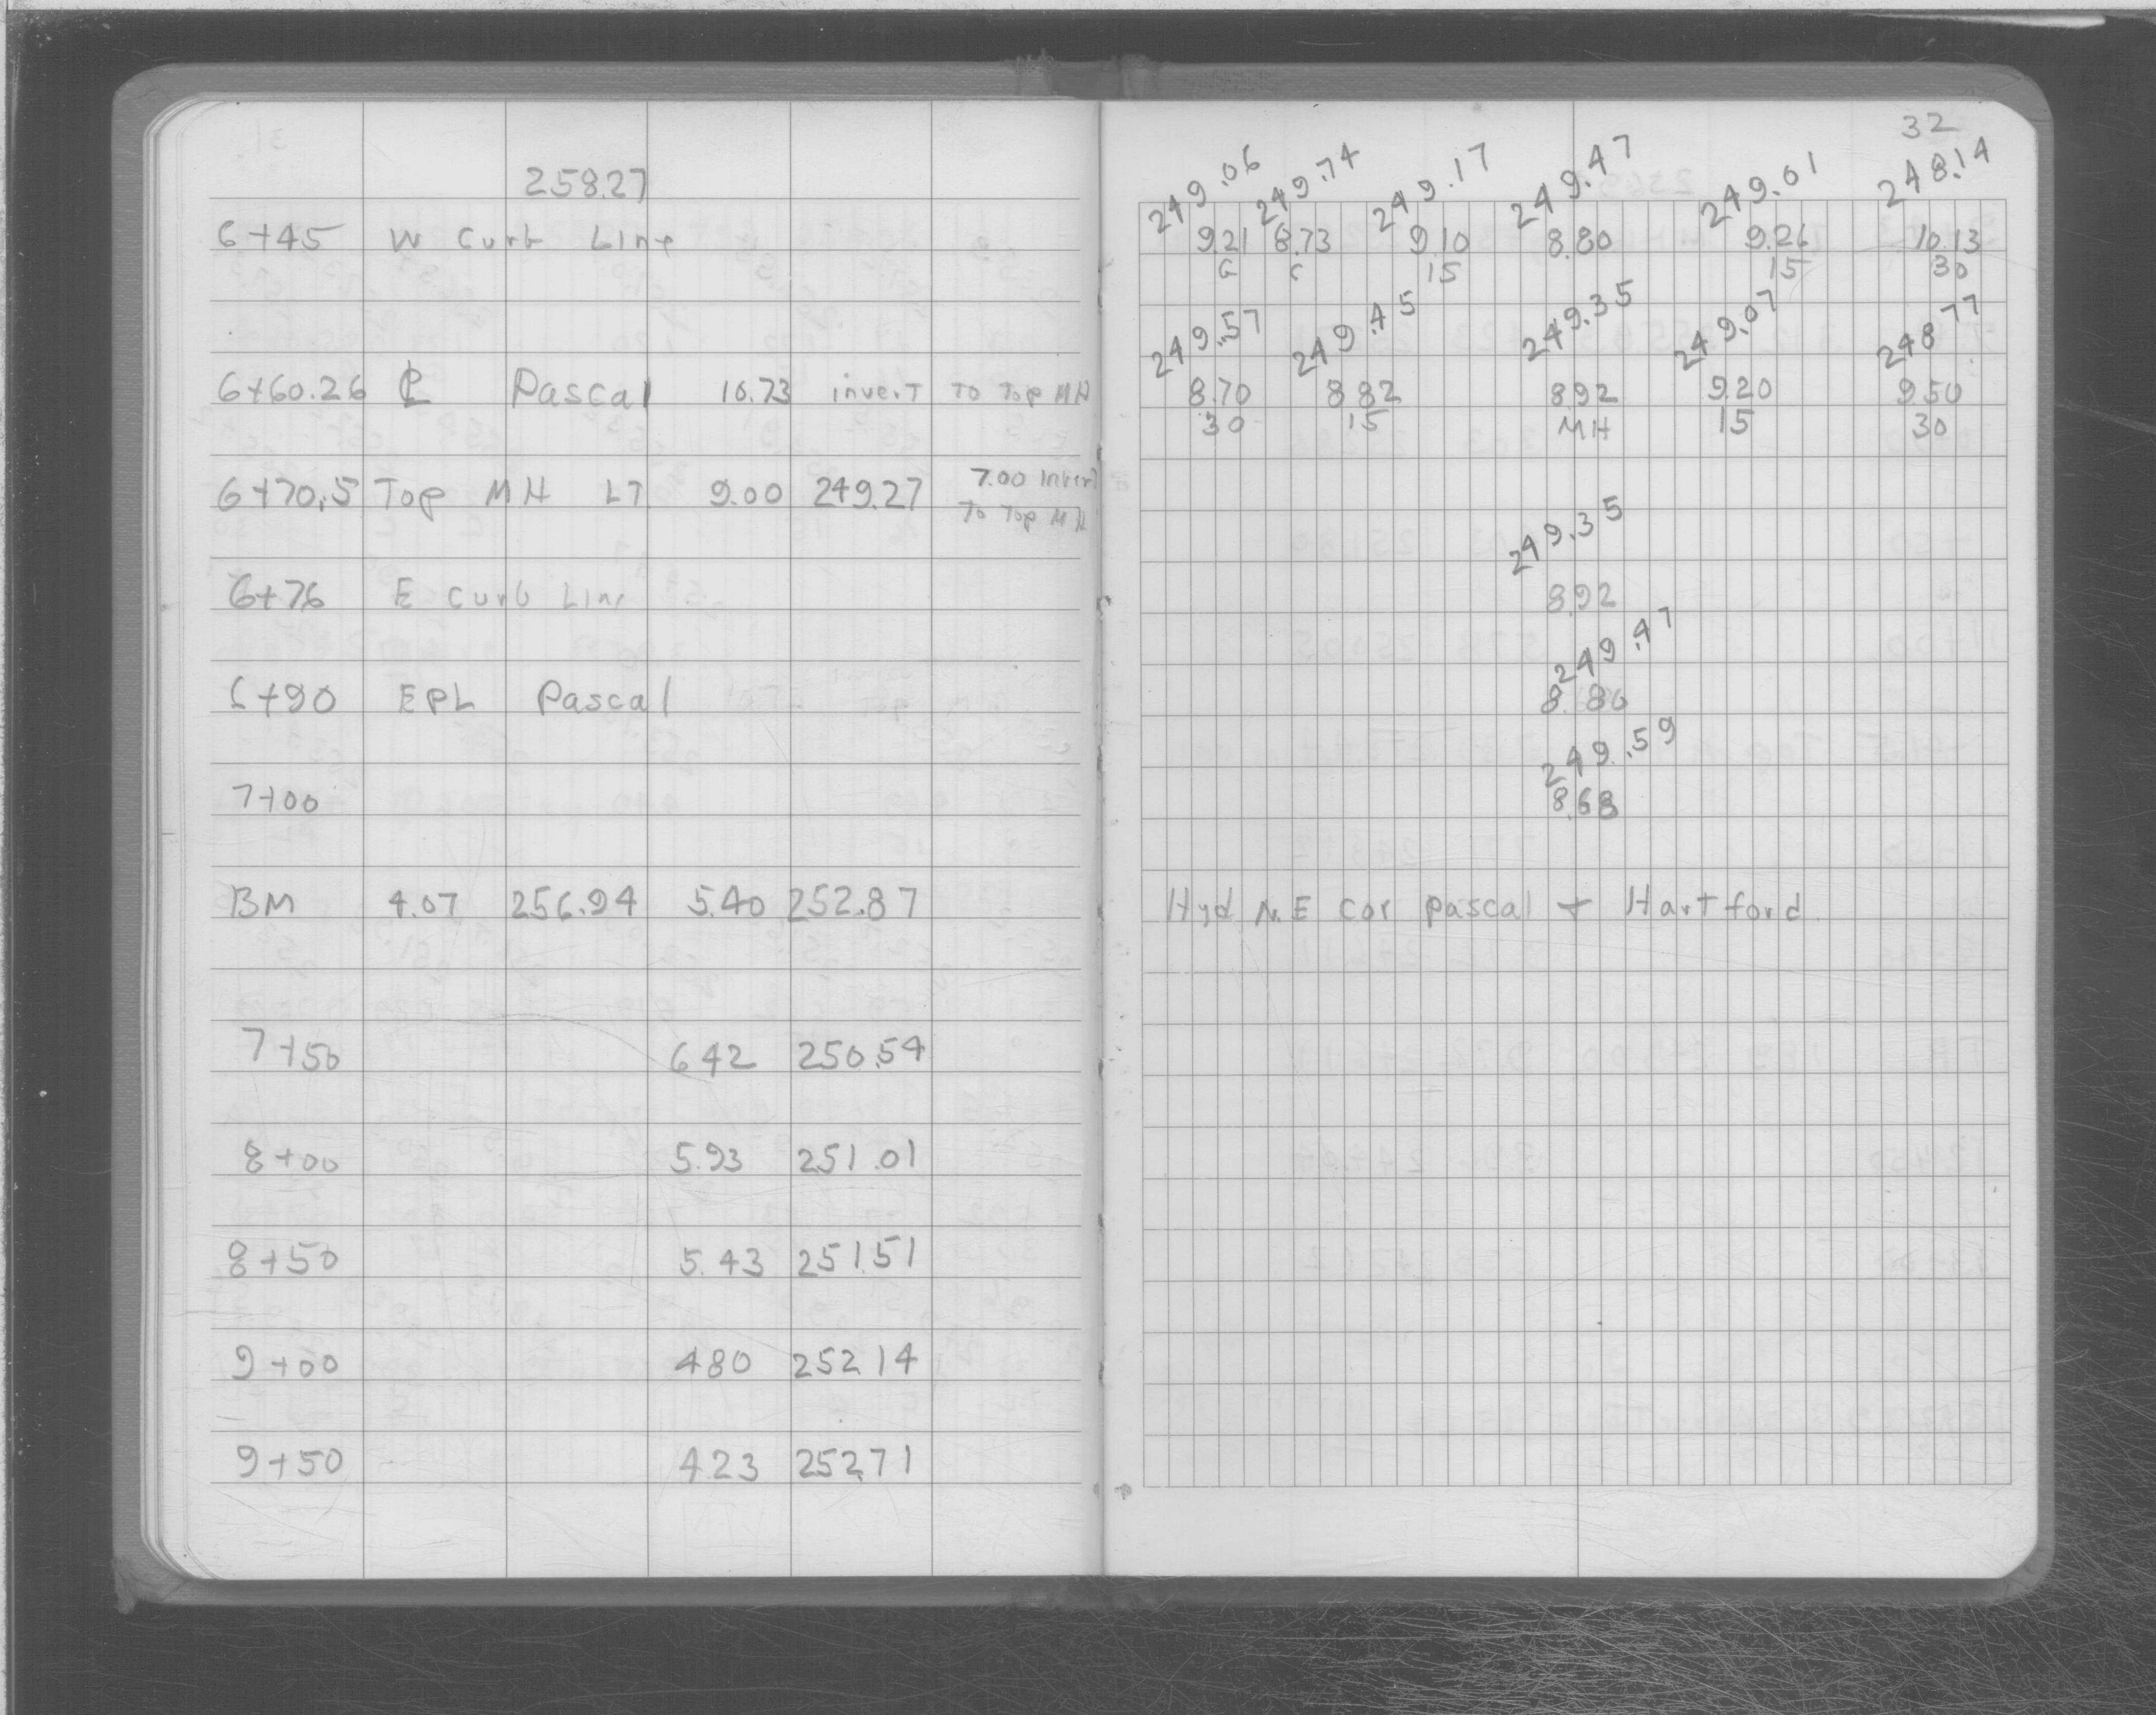 258.27
6+45 W Curb Line
6+60.26 ℄ Pascal 10.73 invert To Top MH
6+70.5 Top MH LT 9.00 249.27 7.00 Invert
To Top MH
6+76 E Curb Line
6+90 EPL Pascal
7+00
BM 4.07 256.94 5.40 252.87
7+50 6.42 250.54
8+00 5.93 251.01
8+50 5.43 251.51
9+00 4.80 252.14
9+50 4.23 252.71
32
249.06 249.74 249.17 249.47 249.01 248.14
9.21 8.73 9.10 8.80 9.26 10.13
G C 15 15 30
249.57 249.45 249.35 249.07 248.77
8.70 8.82 8.92 9.20 9.50
30 15 MH 15 30
249.35
8.92
249.47
8.80
249.59
8.68
Hyd N.E cor pascal + Hartford